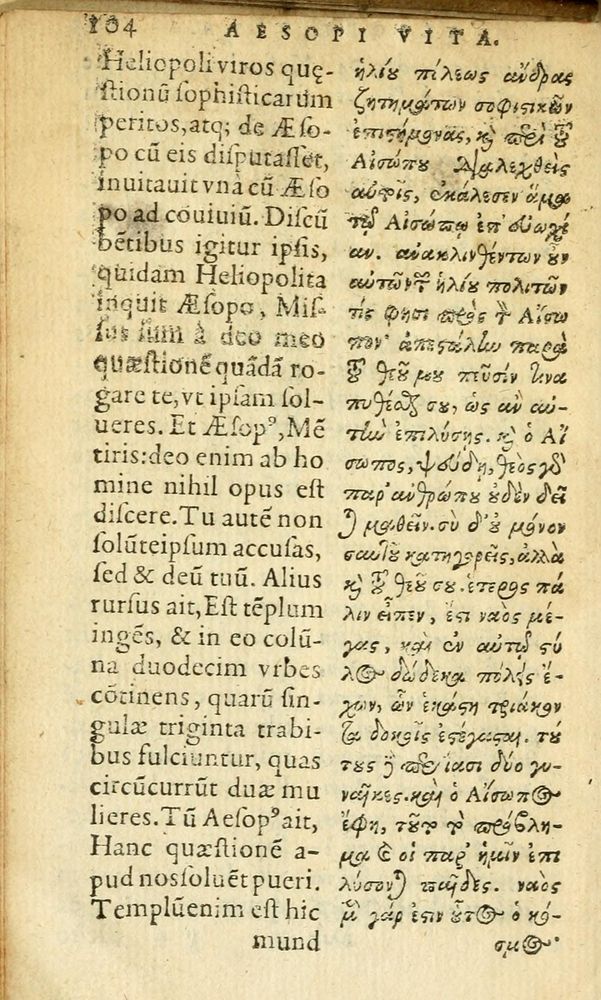 104 AESOPI VITA.
Heliopoli viros quę-
stionũ sophisticarum
peritos, atq; de Æso-
po cũ eis disputasset,
inuitauit vnà cũ Æso
po ad conuiuiũ. Discũ
bẽtibus igitur ipsis,
quidam Heliopolita
inquit Æsopo, Mis-
sus sum à deo meo
quæstionẽ quãdã ro-
gare te, vt ipsam sol-
ueres. Et Æsopꝰ, Mẽ
tiris: deo enim ab ho
mine nihil opus est
discere. Tu autẽ non
solũ teipsum accusas,
sed & deũ tuũ. Alius
rursus ait, Est tẽplum
ingẽs, & in eo colũ-
na duodecim vrbes
cõtinens, quarũ sin-
gulæ triginta trabi-
bus fulciuntur, quas
circũcurrũt duæ mu
lieres. Tũ Aesopꝰ ait,
Hanc quæstionẽ a-
pud nos soluẽt pueri.
Templũ enim est hic
mund
ἡλίου πόλεως ἄνδρας
ζητημάτων σοφιστικῶν
ἐπιστήμονας, καὶ περὶ τοῦ
Αἰσώπου διαλεχθεὶς
αὐτοῖς, ἐκάλεσεν ἅμα
τῷ Αἰσώπῳ ἐπ' εὐωχί
αν. ἀνακλινθέντων οὖν
αὐτῶν τῶν ἡλίου πολιτῶν
τίς φησι πρὸς τὸν Αἴσω
πον· ἀπεστάλην παρὰ
τοῦ θεοῦ μου πεῦσίν τινα
πυθέσθαι σου, ὡς ἂν αὐ-
τὴν ἐπιλύσῃς. καὶ ὁ Αἴ
σωπος, ψεύδῃ, θεὸς γὰρ
παρ' ἀνθρώπου οὐδὲν δεῖ
ται μαθεῖν. σὺ δ' οὐ μόνον
σαυτοῦ κατηγορεῖς, ἀλλὰ
καὶ τοῦ θεοῦ σου. ἕτερος πά
λιν εἶπεν, ἔστι ναὸς μέ-
γας, καὶ ἐν αὐτῷ στύ
λος δώδεκα πόλεις ἔ-
χων, ὧν ἑκάστη τριάκον
τα δοκοῖς ἐστέγασται. τού
τους δὲ περιίασι δύο γυ-
ναῖκες. καὶ ὁ Αἴσωπος
ἔφη, τοῦτο τὸ πρόβλη-
μα καὶ οἱ παρ' ἡμῖν ἐπι
λύσονται παῖδες. ναὸς
μὲν γάρ ἐστιν οὗτος ὁ κό-
σμος·